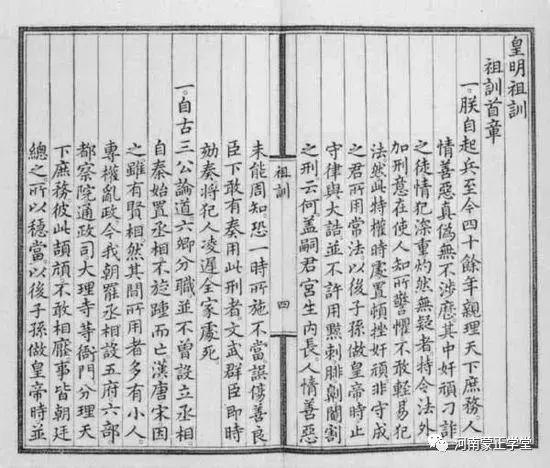 皇明祖訓
祖訓首章
一朕自起兵至今四十餘年親理天下庶務人
情善惡真偽無不涉歷其中奸頑刁詐
之徒情犯深重灼然無疑者特令法外
加刑意在使人知所警懼不敢輕易犯
法然此特權時處置頓挫奸頑非守成
之君所用常法以後子孫做皇帝時止
守律與大誥並不許用黥刺腓劓閹割
之刑云何蓋嗣君宮生內長人情善惡
祖訓
四
未能周知恐一時所施不當誤傷善良
臣下敢有奏用此刑者文武群臣即時
劾奏將犯人凌遲全家處死
一自古三公論道六卿分職並不曾設立丞相
自秦始置丞相不旋踵而亡漢唐宋因
之雖有賢相然其間所用者多有小人
專權亂政今我朝罷丞相設五府六部
都察院通政司大理寺等衙門分理天
下庶務彼此頡頏不敢相壓事皆朝廷
總之所以穩當以後子孫做皇帝時並
河南蒙正学堂